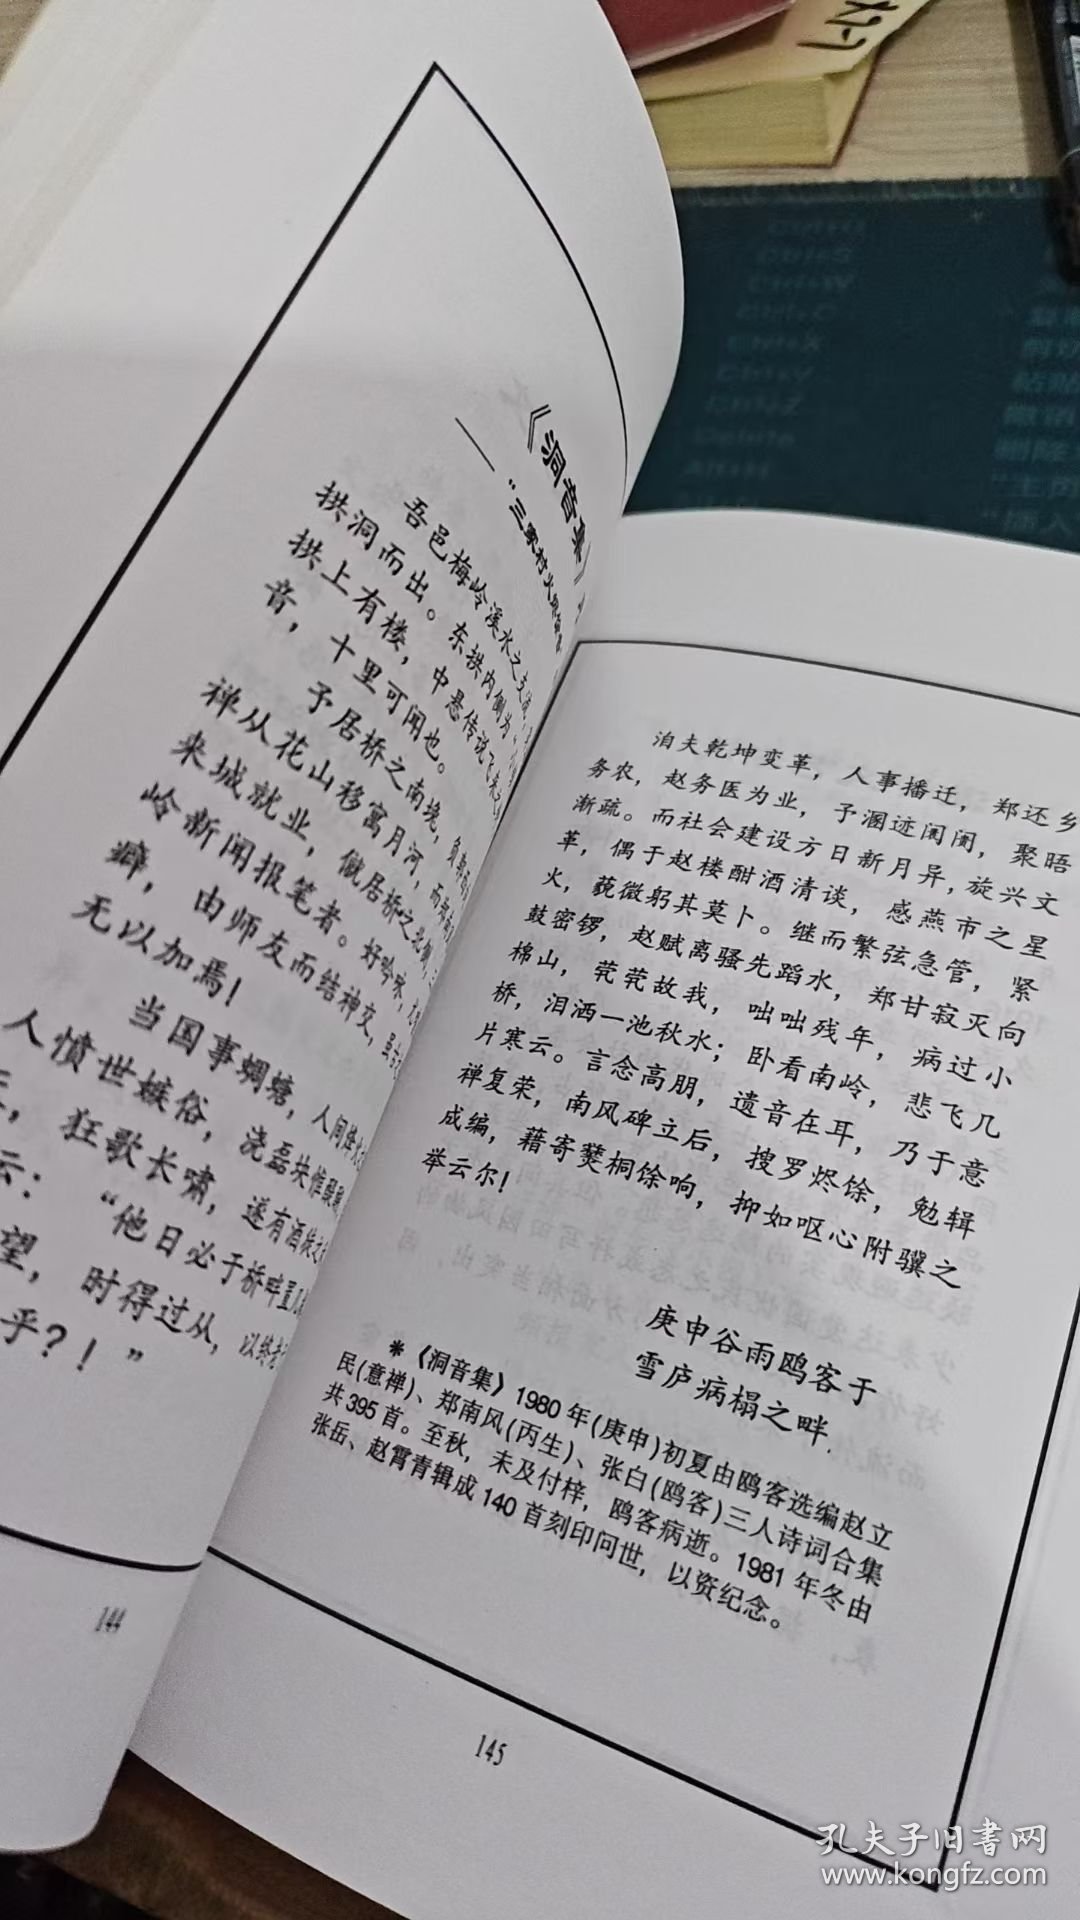 《洞音集》
吾邑梅岭溪水之支流
拱洞而出。东拱内侧为
拱上有楼，中悬传说飞来之
音，十里可闻也。
予居桥之南堍，负郭
禅从花山移寓月河，而郑南
来城就业，僦居桥之北侧，
岭新闻报笔者。好吟咏，
癖，由师友而结神交，虽
无以加焉！
当国事蜩螗，人间烽火
人愤世嫉俗，浇磊块惟
狂歌长啸，遂有酒
云：“他日必于桥畔置
望，时得过从，以终老
乎？！”
144
洎夫乾坤变革，人事播迁，郑还乡
务农，赵务医为业，予溷迹闤闠，聚晤
渐疏。而社会建设方日新月异，旋兴文
革，偶于赵楼酣酒清谈，感燕市之星
火，藐微躬其莫卜。继而繁弦急管，紧
鼓密锣，赵赋离骚先蹈水，郑甘寂灭向
棉山，茕茕故我，咄咄残年，病过小
桥，泪洒一池秋水；卧看南岭，悲飞几
片寒云。言念高朋，遗音在耳，乃于意
禅复荣，南风碑立后，搜罗烬馀，勉辑
成编，藉寄爨桐馀响，抑如呕心附骥之
举云尔！
庚申谷雨鸥客于
雪庐病榻之畔.
*《洞音集》1980年(庚申)初夏由鸥客选编赵立
民(意禅)、郑南风(丙生)、张白(鸥客)三人诗词合集
共395首。至秋，未及付梓，鸥客病逝。1981年冬由
张岳、赵霄青辑成140首刻印问世，以资纪念。
145
孔夫子旧书网
www.kongfz.com